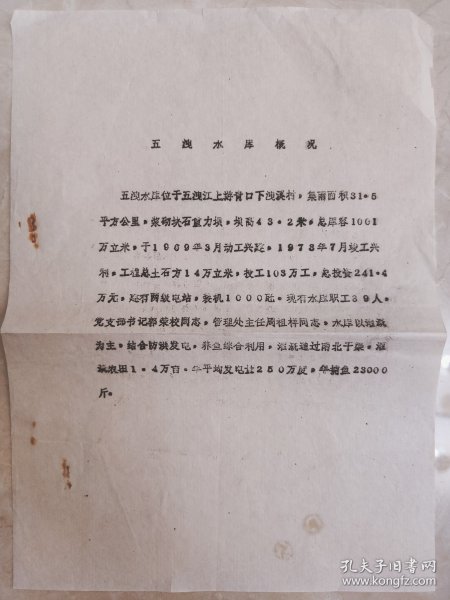 五洩水库概况
五洩水库位于五洩江上游青口下洩溪村，集雨面积31.5
平方公里，浆砌块石重力坝，坝高43.2米，总库容1001
万立米，于1969年3月动工兴建，1973年7月竣工兴
利，工程总土石方14万立米，投工103万工，总投资241.4
万元，建有两级电站，装机1000瓩，现有水库职工39人，
党支部书记郭荣校同志，管理处主任周祖祥同志，水库以灌溉
为主，结合防洪发电，养鱼综合利用，灌溉通过南北干渠，灌
溉农田1.4万亩，年平均发电量250万度，年捕鱼23000
斤。
孔夫子旧书网
www.kongfz.com